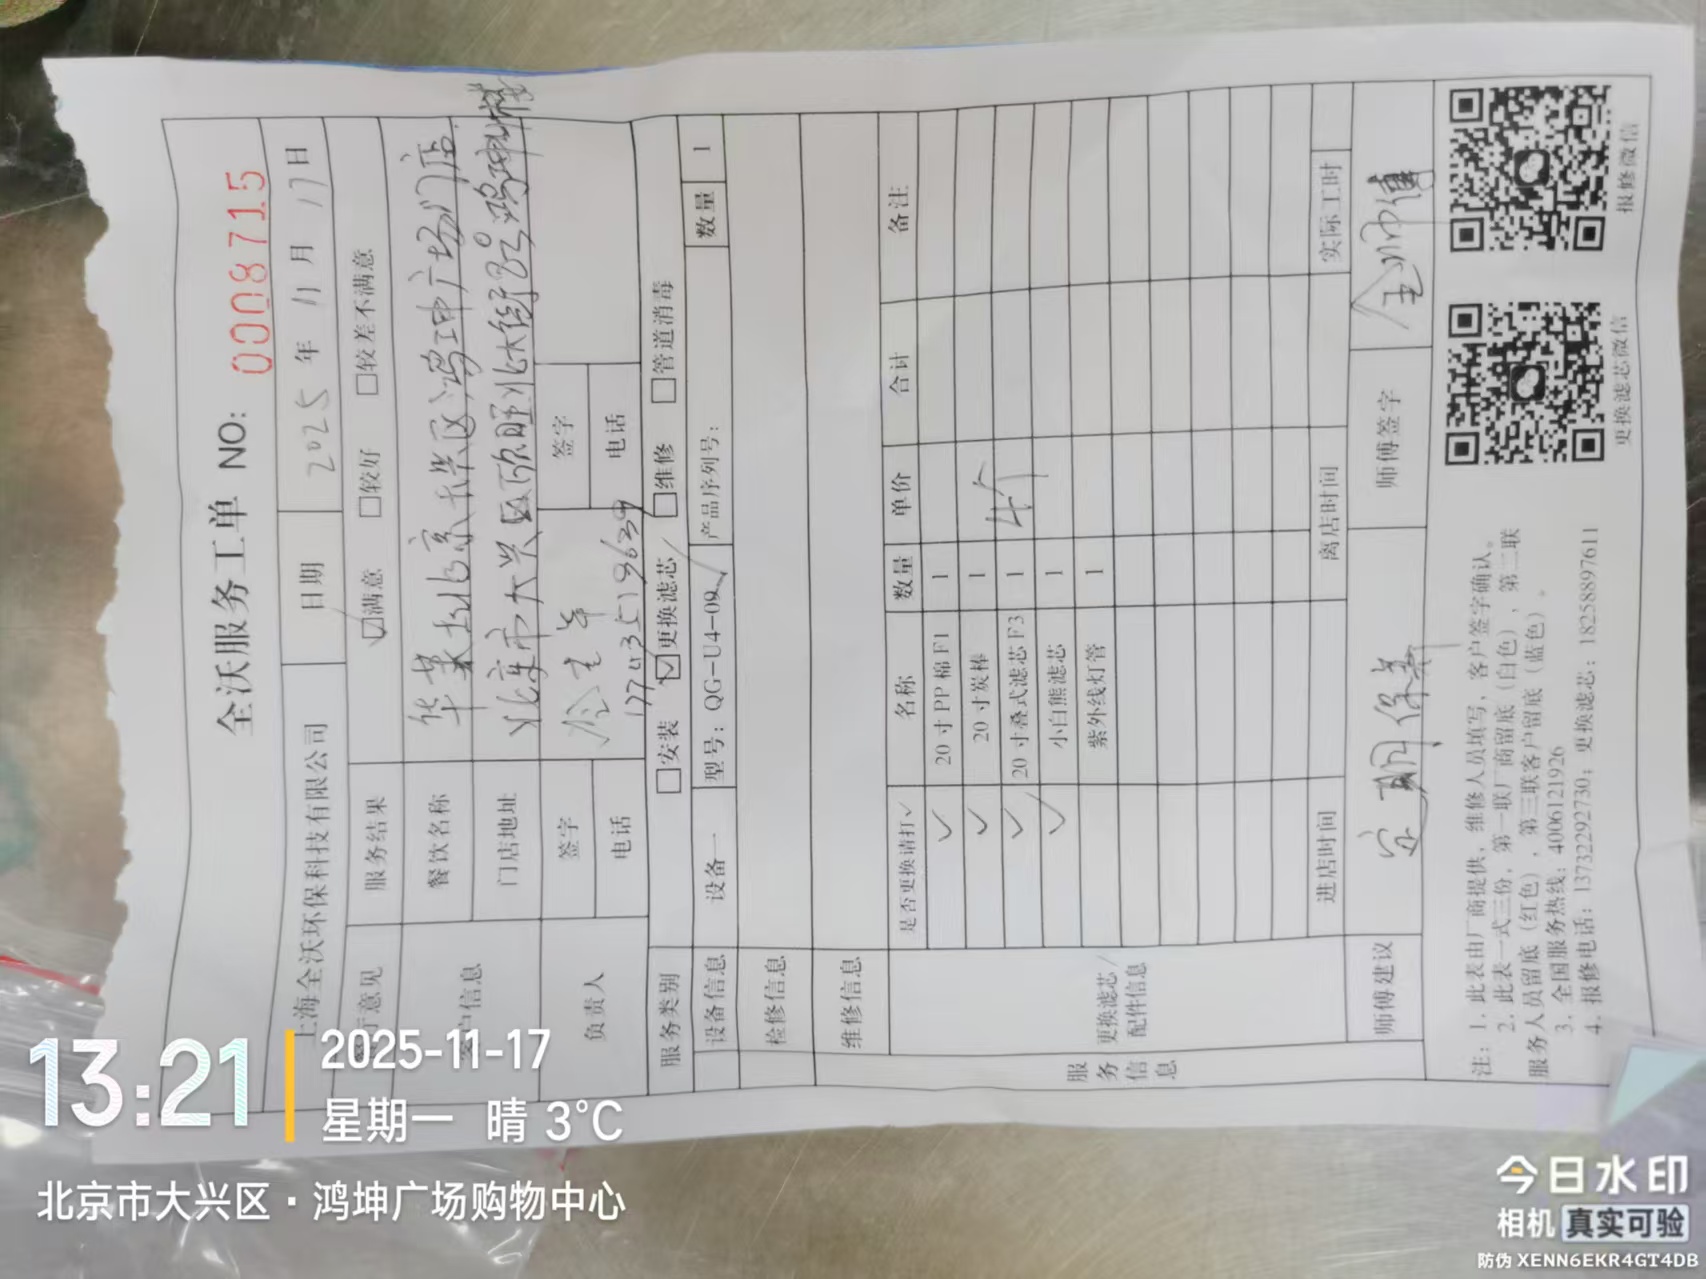 全沃服务工单 NO: 0008715
上海全沃环保科技有限公司 日期 2025 年 11 月 17 日
意见 服务结果 ☑满意 □较好 □较差不满意
客户信息 餐饮名称 华莱士北京大兴区鸿坤广场门店
门店地址 北京市大兴区欣旺北大街8号鸿坤
负责人 签字 签字
电话 17743519639 电话
服务类别 □安装 ☑更换滤芯 □维修 □管道消毒
设备信息 设备一 型号: QG-U4-09 产品序列号: 数量 1
检修信息
维修信息
服务信息
更换滤芯/配件信息
是否更换请打✓ 名称 数量 单价 合计 备注
✓ 20寸PP棉F1 1
✓ 20寸炭棒 1
✓ 20寸叠式滤芯F3 1 4个
✓ 小白熊滤芯 1
紫外线灯管 1
进店时间 离店时间 实际工时
师傅建议 定期保养 师傅签字 全师傅
注: 1. 此表由厂商提供, 维修人员填写, 客户签字确认。
2. 此表一式三份, 第一联厂商留底(白色), 第二联
服务人员留底(红色), 第三联客户留底(蓝色)。
3. 全国服务热线: 4006121926
4. 报修电话: 13732292730; 更换滤芯: 18258897611
更换滤芯微信 报修微信
13:21
2025-11-17
星期一 晴 3°C
北京市大兴区·鸿坤广场购物中心
今日水印
相机 真实可验
防伪 XENN6EKR4GT4DB